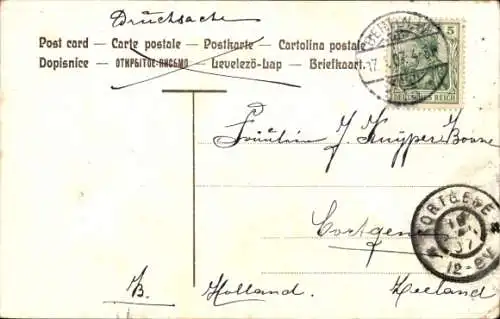 Drucksache
Post card — Carte postale — Postkarte — Cartolina postale
Dopisnice — ОТКРЫТОЕ-ПИСЬМО — Levelező-Lap — Briefkaart
5
DEUTSCHES REICH
Fräulein J. Kuyper Boone
Cortgene
KORTGENE
12-
B. Holland. Zeeland.